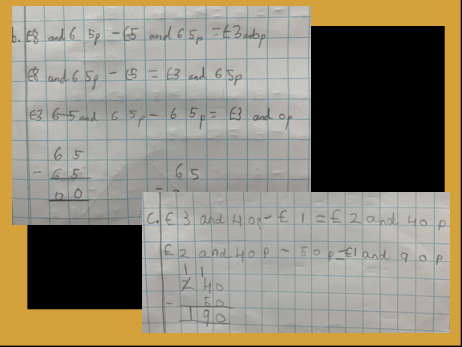 b. £8 and 65p - £5 and 65p = £3 and 0p
£8 and 65p - £5 = £3 and 65p
£3 65 and 65p - 65p = £3 and 0p
65
- 65
00
65
C. £3 and 40p - £1 = £2 and 40p
£2 and 40p - 50p = £1 and 90p
1 1
2 40
- 50
190